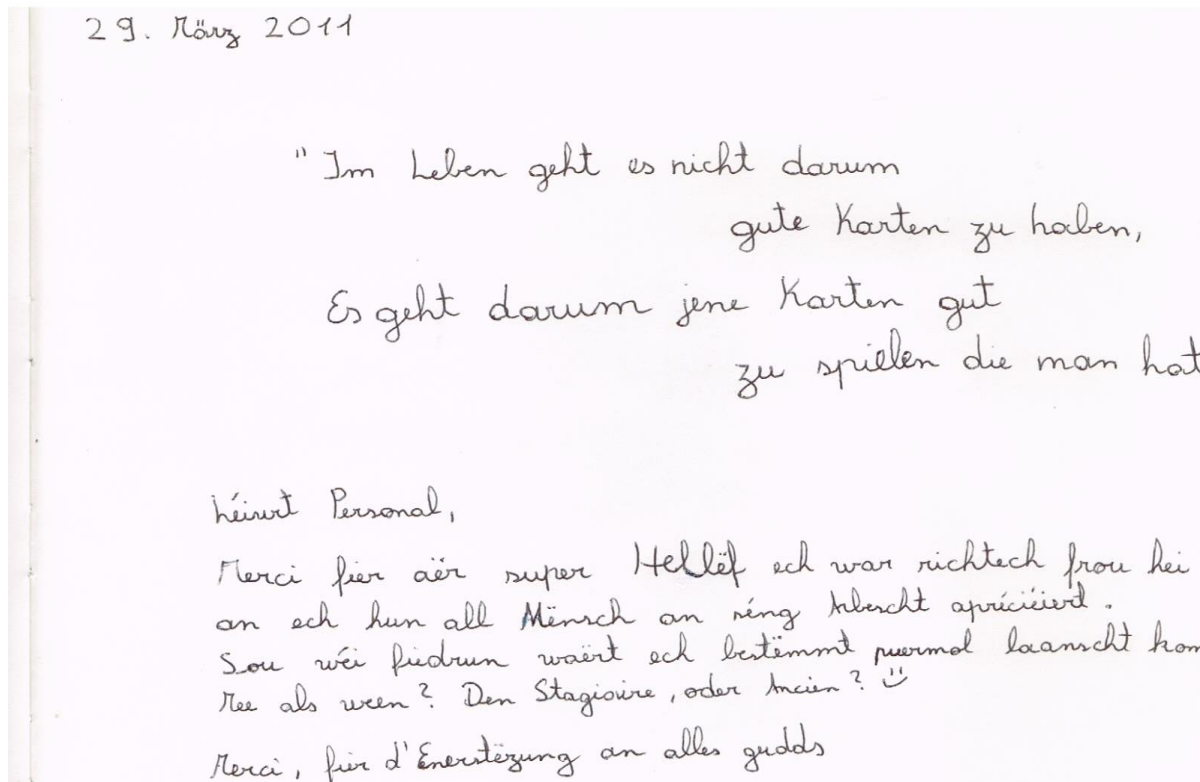 29. März 2011
" Im Leben geht es nicht darum
gute Karten zu haben,
Es geht darum jene Karten gut
zu spielen die man hat
Léiwt Personal,
Merci fier aër super Hellëf ech war richtech frou hei
an ech hun all Mënsch an séng Arbescht apriciéiert.
Sou wéi fiedrun waërt ech bestëmmt puermol laanscht kom
Mee als ween? Den Stagiaire, oder Ancien? :)
Merci, fier d'Ënerstëzung an alles gudds